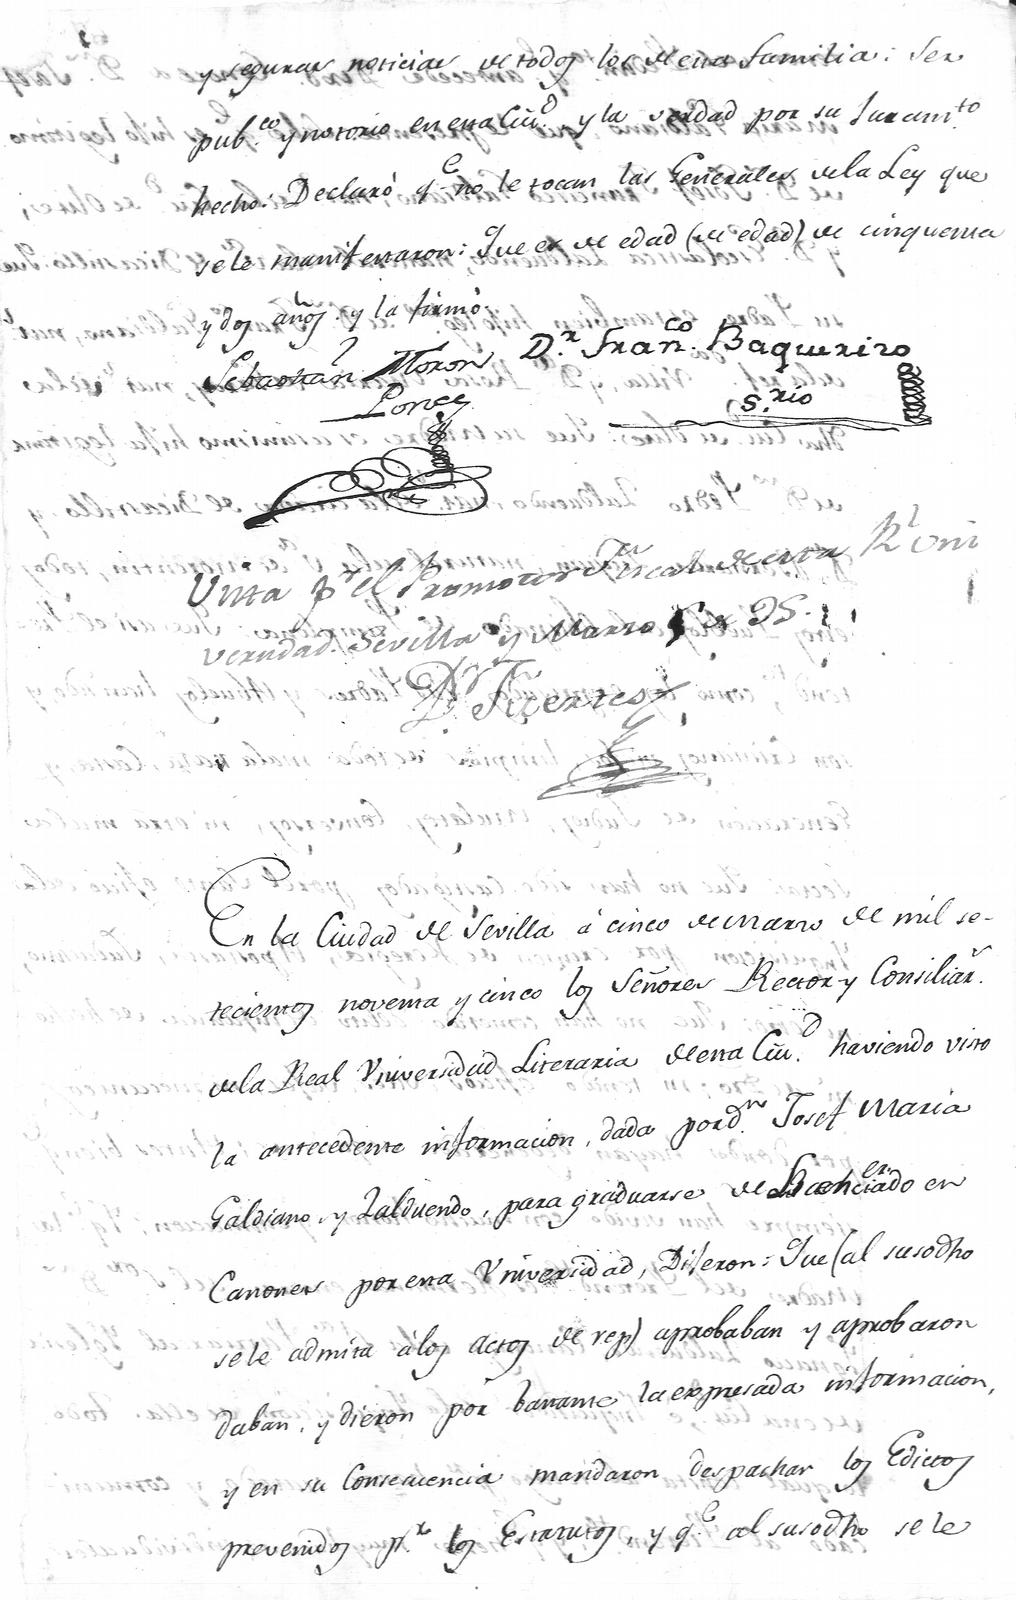 y seguras noticias de todos los de esta familia: Ser
pub.co y notorio en esta Ciu.d y la verdad por su Juram.to
hecho: Declaró q.e no le tocan las Generales de la Ley que
se le manifestaron: Que es de edad (de edad) de cinquenta
y dos años y la firmó.
Sebastián Moron D.r Fran.co Baquerizo
Ponce s.rio
Vista p.r el Promotor Fiscal de esta R.l Uni
versidad. Sevilla y Marzo 5 de 95.
D.r Fuertes
En la Ciudad de Sevilla á cinco de Marzo de mil se-
tecientos noventa y cinco los Señores Rector y Consiliar.s
de la Real Vniversidad Literaria de esta Ciu.d haviendo visto
la antecedente informacion, dada por d.n Josef Maria
Galdiano y Zalduendo, para graduarse de Bacher en
Canones por esta Vniversidad, Dijeron: Que (al susodho
se le admita á los Actos de rep) aprobaban y aprobaron
daban, y dieron por bastante la expresada informacion,
y en su Consecuencia mandaron despachar los Edictos
prevenidos p.r los Estatutos, y q.e al susodho se le